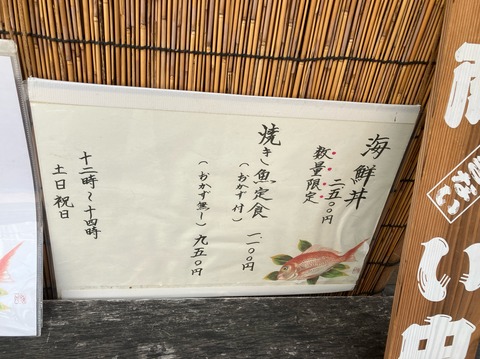 海鮮丼
二五〇〇円
数量限定
焼き魚定食
(おかず付) 一一〇〇円
(おかず無し) 九五〇円
十二時〜十四時
土日祝日
い中